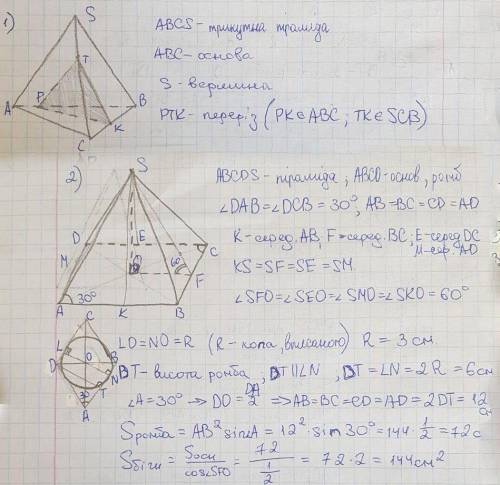 1)
S
T
P
A
B
C
K
ABCS - трикутна піраміда
ABC - основа
S - вершина
PTK - переріз (PK∈ABC; TK∈SCB)
2)
S
D
E
C
M
O
60°
F
A
30°
K
B
ABCDS - піраміда; ABCD - основ, ромб
∠DAB=∠DCB=30°, AB=BC=CD=AD
K - серед. AB, F - серед. BC; E - серед DC
M - сер. AD
KS=SF=SE=SM
∠SFO=∠SEO=∠SMO=∠SKO=60°
C
L
D
O
B
N
T
30°
A
LO=NO=R (R - кола, вписаного) R=3см
DT - висота ромба, DT∥LN, DT=LN=2R=6см
∠A=30° → DO=DA/2 ⇒ AB=BC=CD=AD=2DT=12см
Sромба = AB² sin∠A = 12²·sin30° = 144·1/2 = 72с
Sбічн = Sосн/cos∠SFO = 72/(1/2) = 72·2 = 144см²